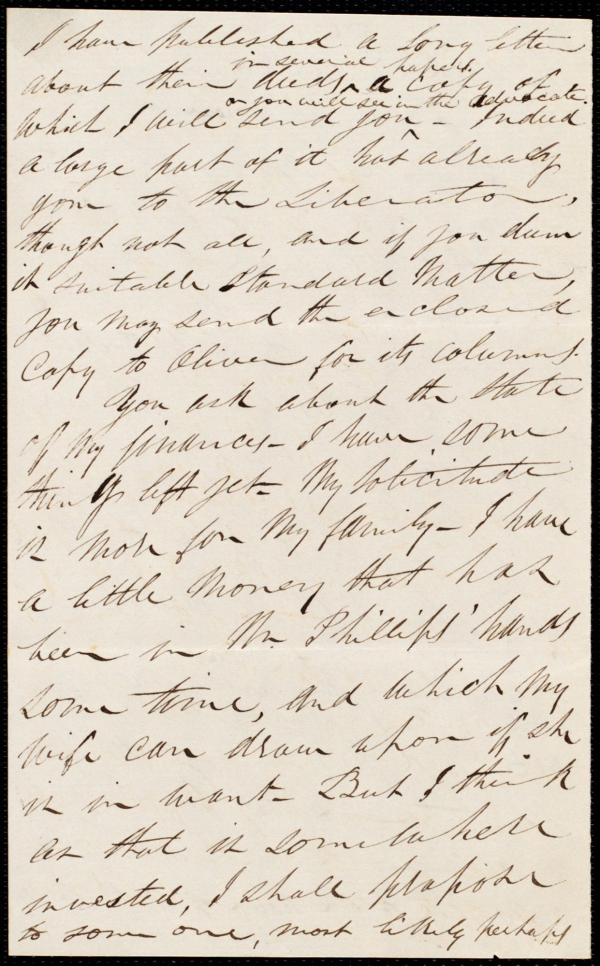 I have published a long letter
in several papers.
about their deeds, a copy of
or you will see in the Advocate.
which I will send you - Indeed
a large part of it has already
gone to the Liberator,
though not all, and if you deem
it suitable Standard matter,
you may send the enclosed
copy to Oliver for its columns.
You ask about the state
of my finances - I have some
things left yet - My solicitude
is more for my family - I have
a little money that has
been in Mr. Phillips' hands
some time, and which my
wife can draw upon if she
is in want - But I think
as that is somewhere
invested, I shall propose
to some one, most likely perhaps